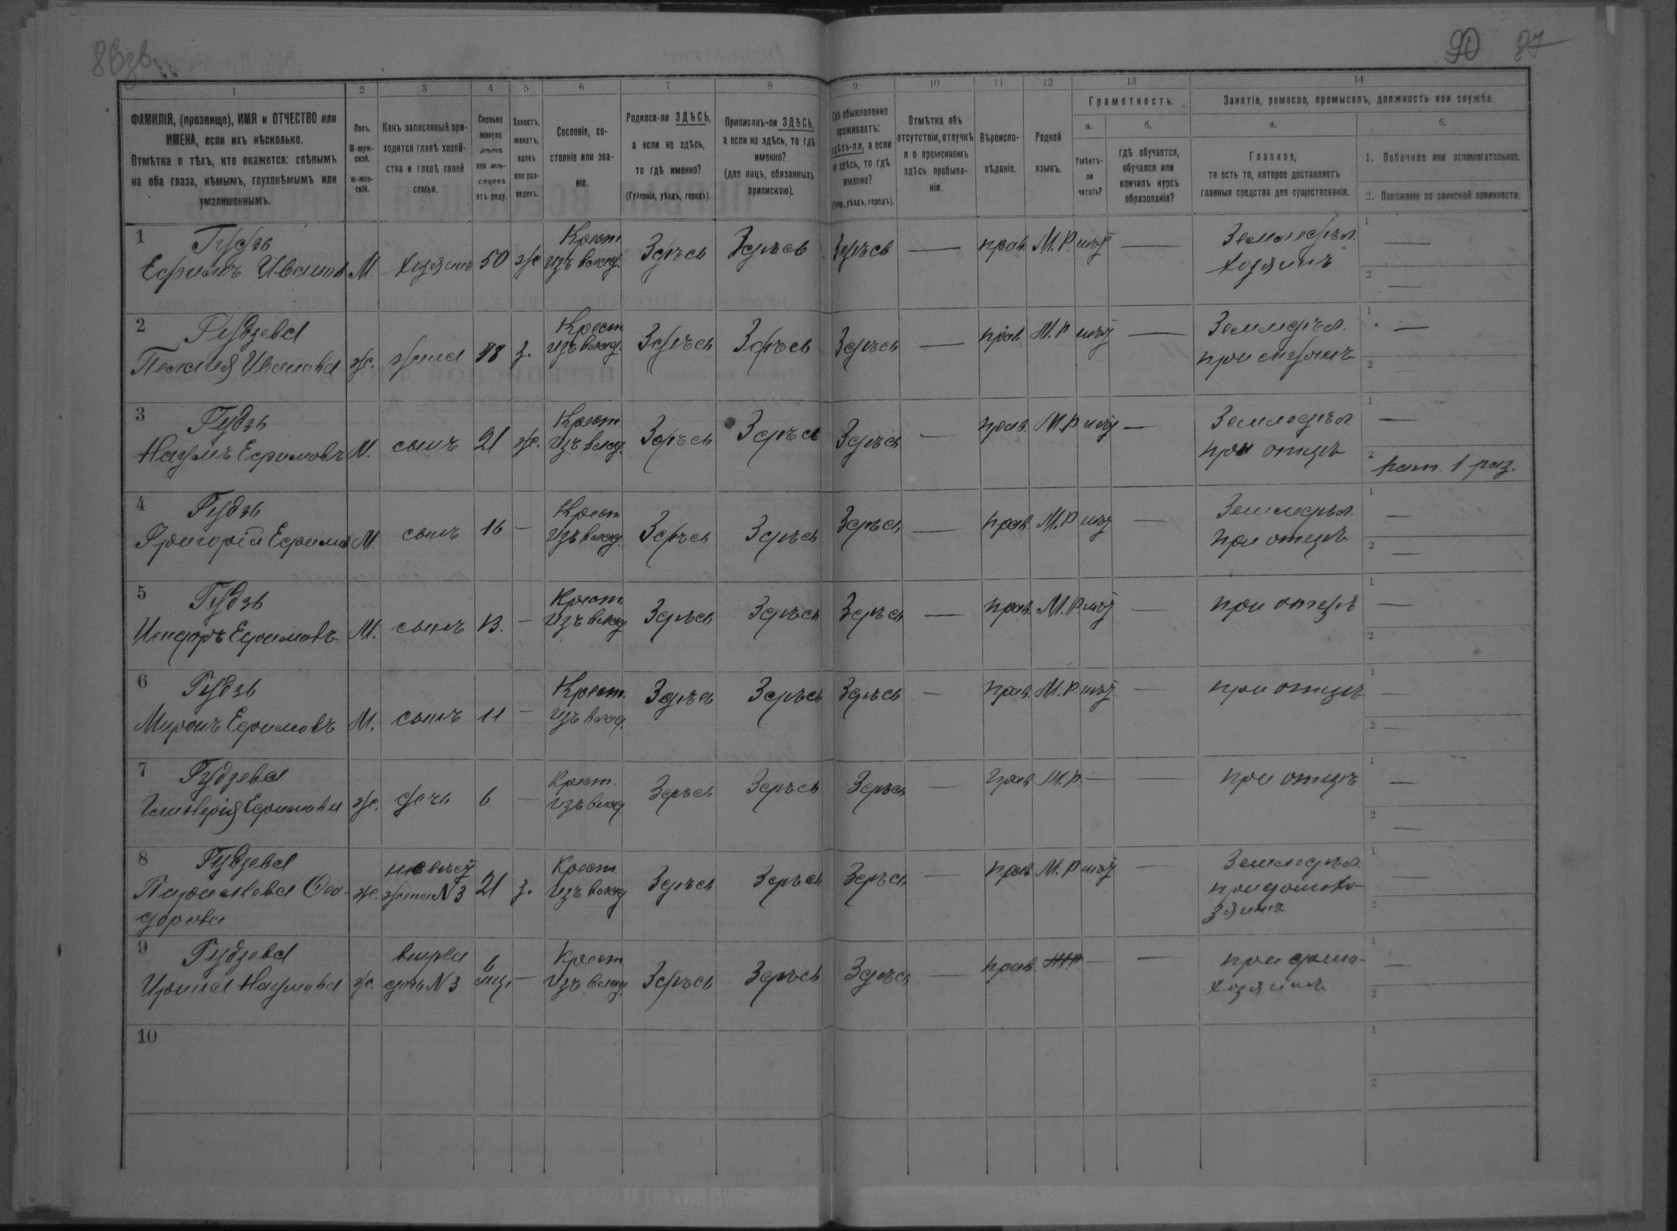 86зв.
90 87
1 2 3 4 5 6 7 8 9 10 11 12 13 14
ФАМИЛІЯ, (прозвище), ИМЯ и ОТЧЕСТВО или
ИМЕНА, если ихъ нѣсколько.
Отмѣтка о тѣхъ, кто окажется: слѣпымъ
на оба глаза, нѣмымъ, глухонѣмымъ или
умалишеннымъ.
Полъ.
М-муж-
ской.
ж-жен-
скій.
Какъ записанный при-
ходится главѣ хозяй-
ства и главѣ своей
семьи.
Сколько
минуло
лѣтъ
или мѣ-
сяцевъ
отъ роду.
Холостъ,
женатъ,
вдовъ
или раз-
веденъ.
Сословіе, со-
стояніе или зва-
ніе.
Родился-ли ЗДѢСЬ,
а если не здѣсь,
то гдѣ именно?
(Губернія, уѣздъ, городъ).
Приписанъ-ли ЗДѢСЬ,
а если не здѣсь, то гдѣ
именно?
(для лицъ, обязанныхъ
припискою).
Гдѣ обыкновенно
проживаетъ:
здѣсь-ли, а если
не здѣсь, то гдѣ
именно?
(Губ., уѣздъ, городъ).
Отмѣтка объ
отсутствіи, отлучкѣ
и о временномъ
здѣсь пребыва-
ніи.
Вѣроиспо-
вѣданіе.
Родной
языкъ.
Грамотность.
а.
Умѣетъ-
ли
читать?
б.
гдѣ обучается,
обучался или
кончилъ курсъ
образованія?
Занятіе, ремесло, промыселъ, должность или служба.
а.
Главное,
то есть то, которое доставляетъ
главныя средства для существованія.
б.
1. Побочное или вспомогательное.
2. Положеніе по воинской повинности.
1 Гудзь
Ефимъ Ивановъ М. хозяинъ 50 ж. Крест. изъ влад. Здѣсь Здѣсь Здѣсь — прав. М.Р. нѣт — Земледѣл. хозяинъ 1 — 2 —
2 Гудзева
Пелагея Иванова ж. жена 48 з. Крест. изъ влад. Здѣсь Здѣсь Здѣсь — прав. М.Р. нѣт — Земледѣл. 1 — 2
3 Гудзь
Наумъ Ефимовъ М. сынъ 21 ж. Крест. изъ влад. Здѣсь Здѣсь Здѣсь — прав. М.Р. нѣт — Земледѣл. при отцѣ 1 — 2 рат. 1 раз.
4 Гудзь
Григорій Ефимов М. сынъ 16 — Крест. изъ влад. Здѣсь Здѣсь Здѣсь — прав. М.Р. нѣт — Земледѣл. при отцѣ 1 — 2 —
5 Гудзь
Исидоръ Ефимовъ М. сынъ 13. — Крест. изъ влад. Здѣсь Здѣсь Здѣсь — прав. М.Р. нѣт — при отцѣ 1 — 2
6 Гудзь
Миронъ Ефимовъ М. сынъ 11 — Крест. изъ влад. Здѣсь Здѣсь Здѣсь — прав. М.Р. нѣт — при отцѣ 1 — 2 —
7 Гудзева
Ефимова ж. дочь 6 — Крест. изъ влад. Здѣсь Здѣсь Здѣсь — прав. М.Р. — — при отцѣ 1 — 2 —
8 Гудзева
Параскева Фео-
дорова ж. жена N 3 21 з. Крест. изъ влад. Здѣсь Здѣсь Здѣсь — прав. М.Р. нѣт — Земледѣл. при домохо-
зяинѣ 1 — 2
9 Гудзева
Ирина Наумова ж. внука дочь N 3 6 мѣс. — Крест. изъ влад. Здѣсь Здѣсь Здѣсь — прав. М.Р. — — при домо-
хозяинѣ 1 — 2
10 1 2